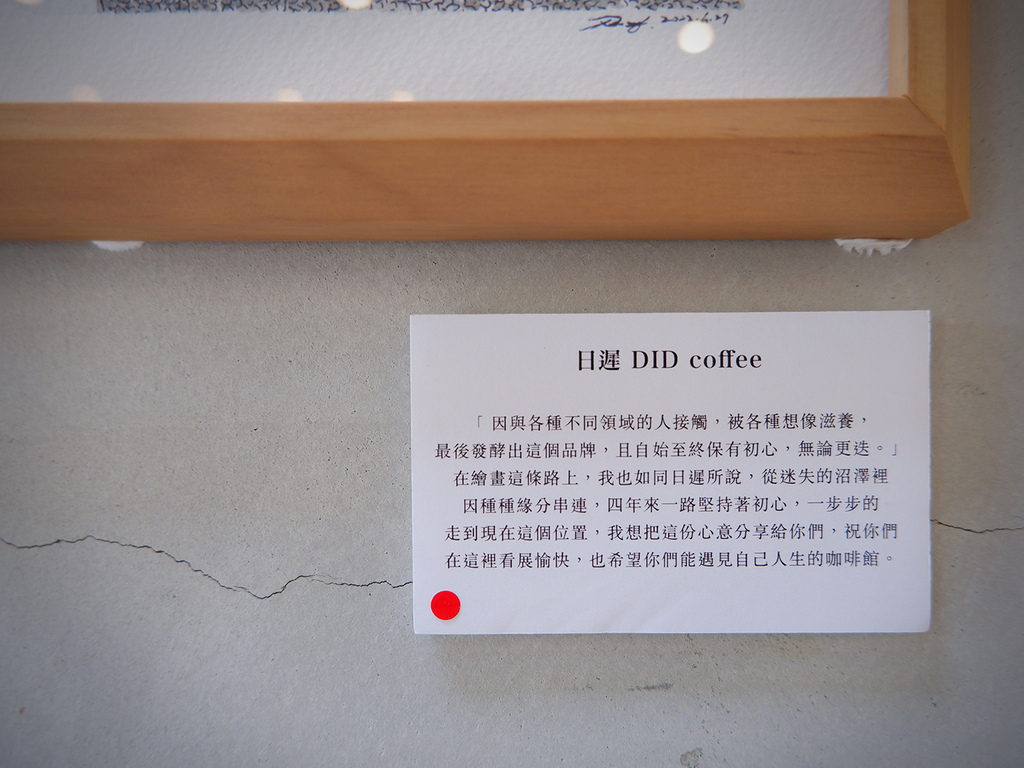 2022.6.27
日遲 DID coffee
「 因與各種不同領域的人接觸，被各種想像滋養，
最後發酵出這個品牌，且自始至終保有初心，無論更迭。」
在繪畫這條路上，我也如同日遲所說，從迷失的沼澤裡
因種種緣分串連，四年來一路堅持著初心，一步步的
走到現在這個位置，我想把這份心意分享給你們，祝你們
在這裡看展愉快，也希望你們能遇見自己人生的咖啡館。